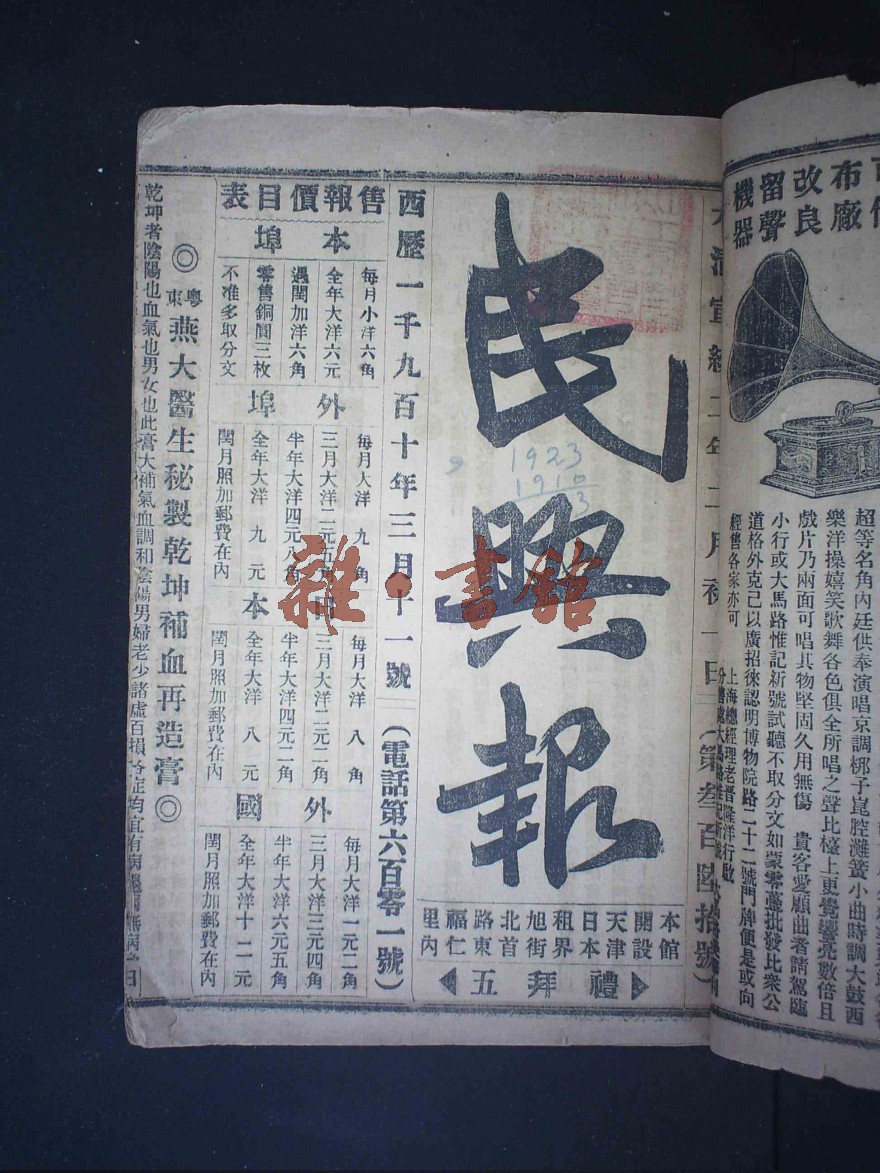 改良
留聲
機器
超等名角內廷供奉演唱京調梆子崑腔灘簧小曲時調大鼓西
樂洋操嬉笑歌舞各色俱全所唱之聲比檯上更覺響亮數倍且
戲片乃兩面可唱其物堅固久用無傷 貴客愛顧曲者請駕臨
小行或大馬路惟記新號試聽不取分文如蒙零躉批發比衆公
道格外克己以廣招徠認明博物院路二十二號門牌便是或向
經售各家亦可
上海總經理老晉隆洋行啟
大清宣統二年二月初一日
(第叁百四拾號)
民興報
1923
1910
3
本館
開設
天津
日本
租界
旭街
北首
路東
福仁
里內
禮拜五
西歷一千九百十年三月十一號
(電話第六百零一號)
售報價目表
本埠
每月小洋六角
全年大洋六元
遇閏加洋六角
零售銅圓三枚
不准多取分文
外埠
每月大洋九角
三月大洋二元五
半年大洋四元八角
全年大洋九元
閏月照加郵費在內
日本
每月大洋八角
三月大洋二元二角
半年大洋四元二角
全年大洋八元
閏月照加郵費在內
外國
每月大洋一元二角
三月大洋三元四角
半年大洋六元五角
全年大洋十二元
閏月照加郵費在內
◎粵東燕大醫生秘製乾坤補血再造膏◎
乾坤者陰陽也血氣也男女也此膏大補氣血調和陰陽男婦老少諸虛百損
雜·書館